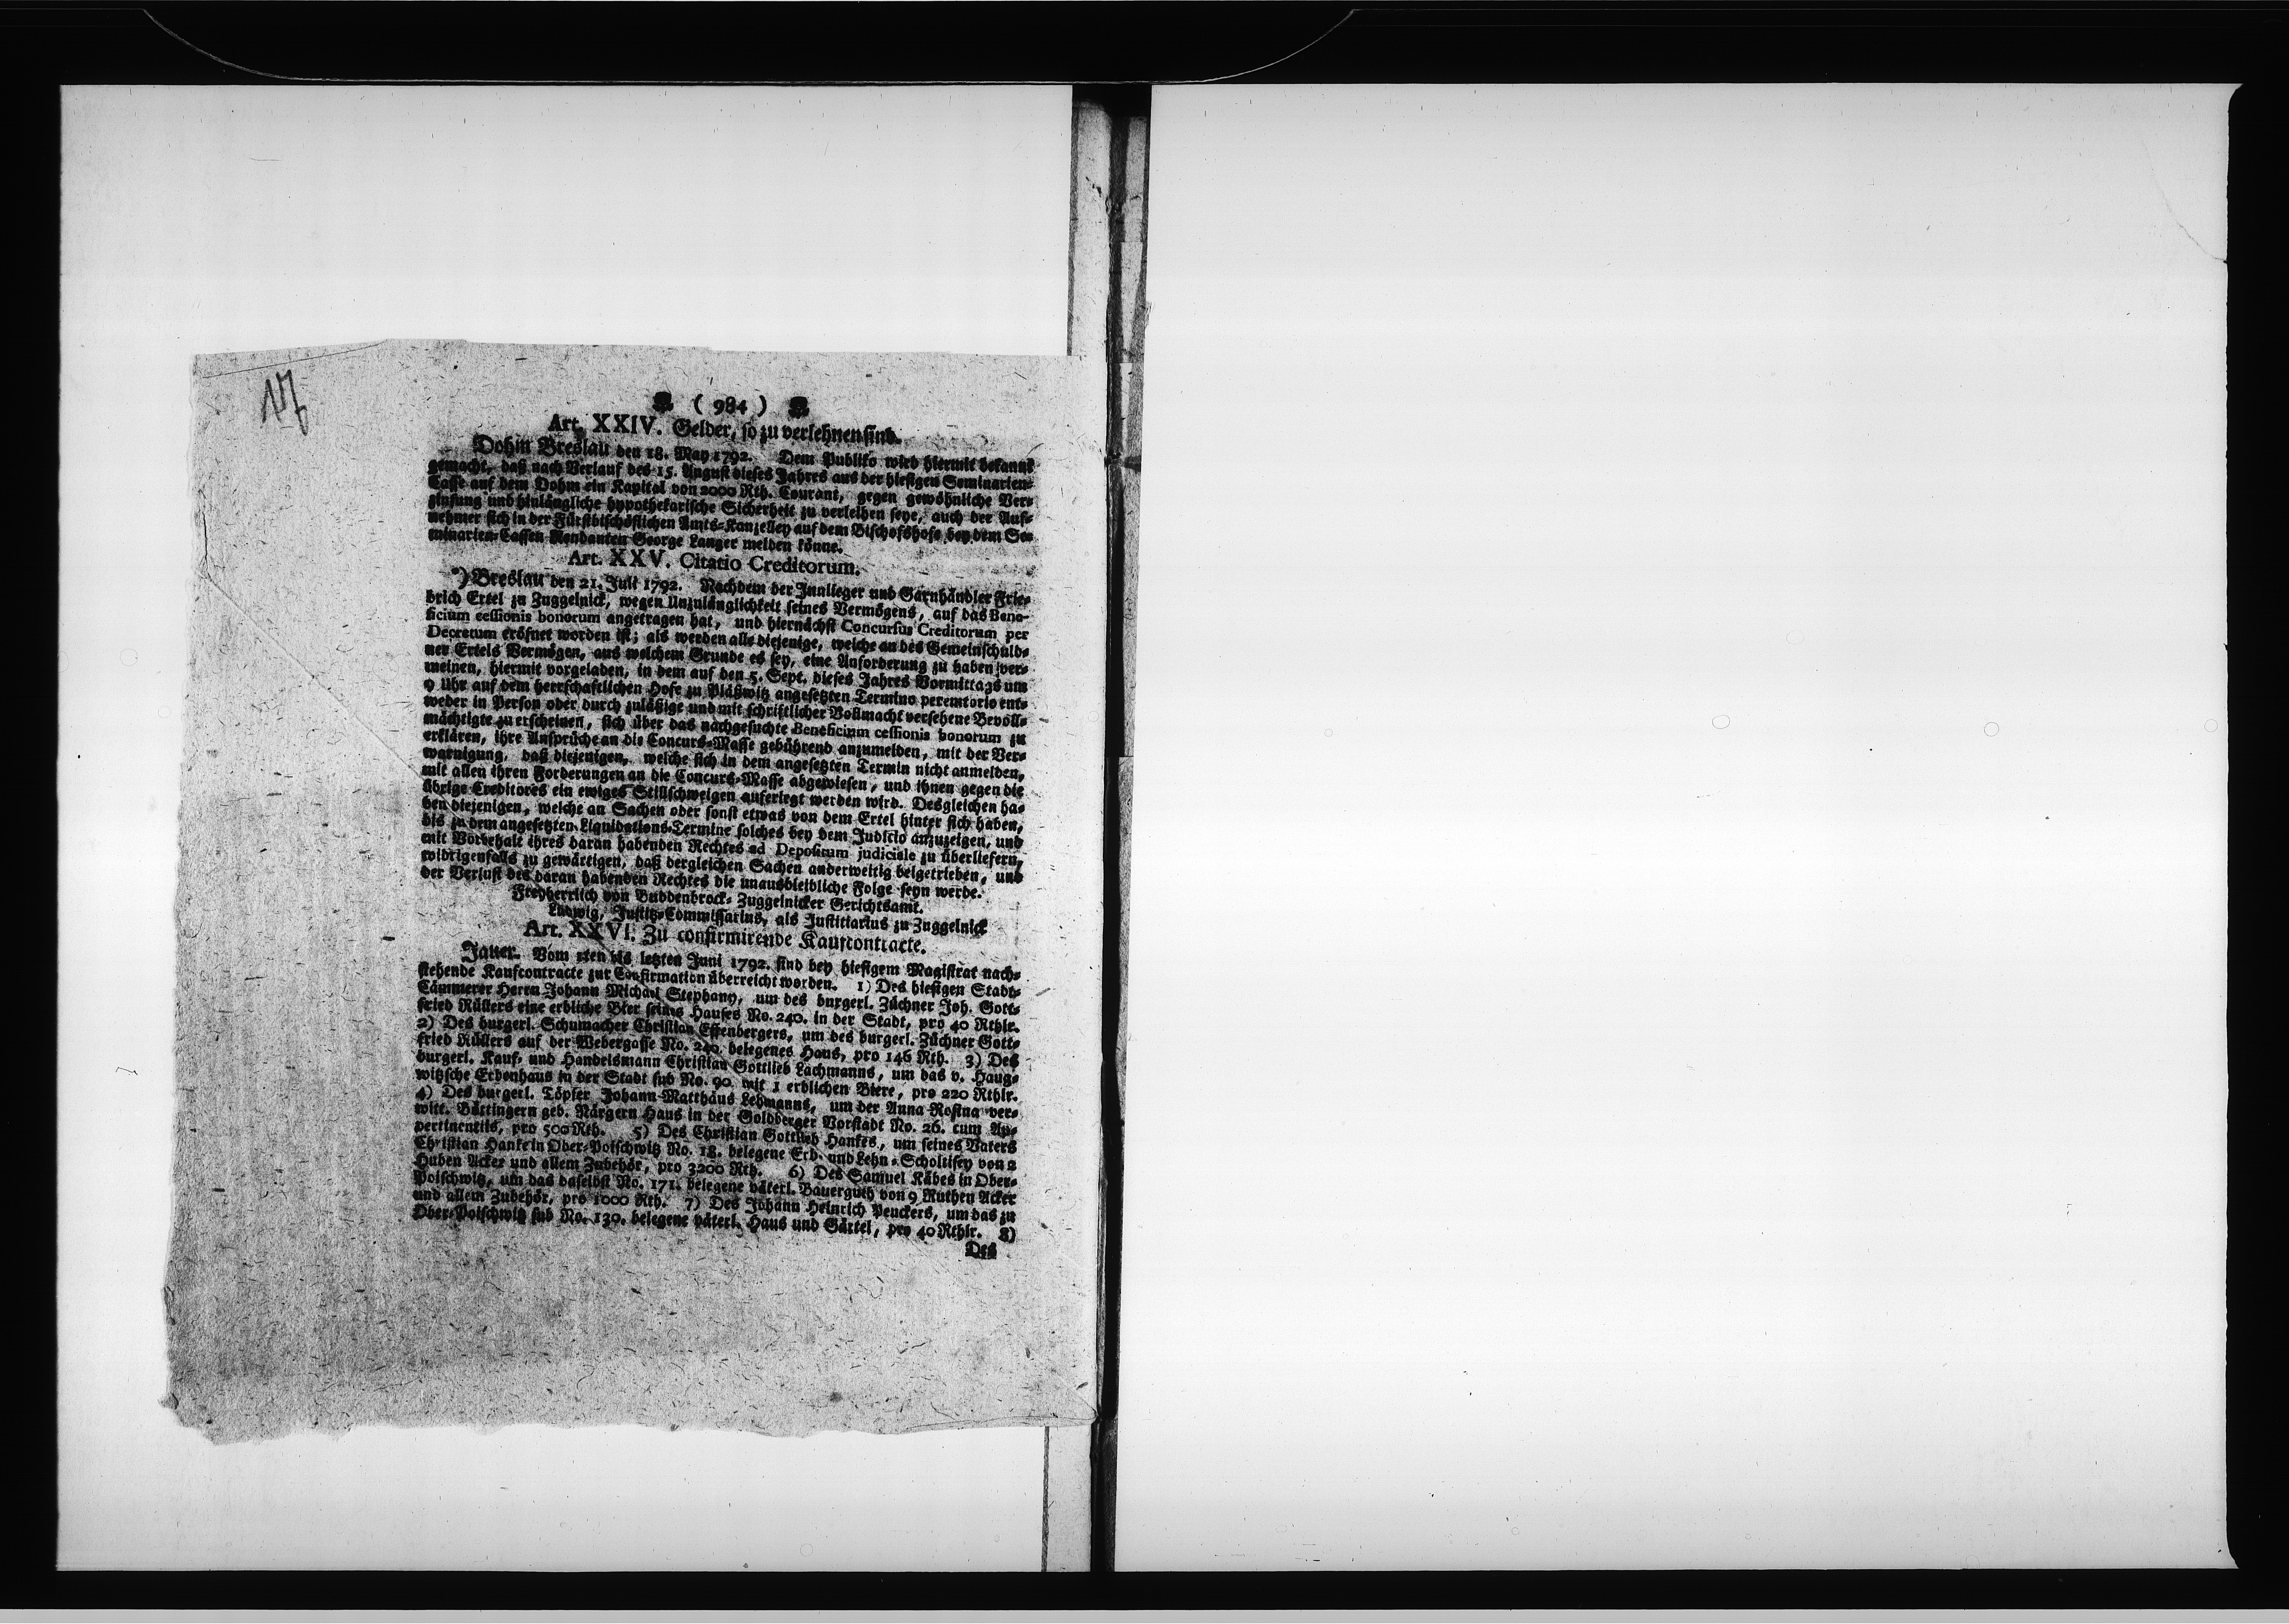 17
( 984 )
Art. XXIV. Gelder, so zu verlehnen sind.
Dohm Breslau den 18. May 1792. Dem Publiko wird hiermit bekannt
gemacht, daß nach Verlauf des 15. August dieses Jahres aus der hiesigen Seminarien-
Casse auf dem Dohm ein Kapital von 2000 Rth. Courant, gegen gewöhnliche Ver-
zinsung und hinlängliche hypothekarische Sicherheit zu verleihen seye, auch der Auf-
nehmer sich in der Fürstbischöflichen Amts-Kanzelley auf dem Bischofshofe bey dem Se-
minarien-Cassen Rendanten George Langer melden könne.
Art. XXV. Citatio Creditorum.
*) Breslau den 21. Juli 1792. Nachdem der Innlieger und Garnhändler Frie-
drich Ertel zu Zuggelnick, wegen Unzulänglichkeit seines Vermögens, auf das Bene-
ficium cessionis bonorum angetragen hat, und hiernächst Concursus Creditorum per
Decretum eröfnet worden ist; als werden alle diejenige, welche an des Gemeinschuld-
ner Ertels Vermögen, aus welchem Grunde es sey, eine Anforderung zu haben ver-
meinen, hiermit vorgeladen, in dem auf den 5. Sept. dieses Jahres Vormittags um
9 Uhr auf dem herrschaftlichen Hofe zu Pläßwitz angesetzten Termino peremtorio ent-
weder in Person oder durch zuläßige und mit schriftlicher Vollmacht versehene Bevoll-
mächtigte zu erscheinen, sich über das nachgesuchte Beneficium cessionis bonorum zu
erklären, ihre Ansprüche an die Concurs-Masse gebührend anzumelden, mit der Ver-
warnigung, daß diejenigen, welche sich in dem angesetzten Termin nicht anmelden,
mit allen ihren Forderungen an die Concurs-Masse abgewiesen, und ihnen gegen die
übrige Creditores ein ewiges Stillschweigen auferlegt werden wird. Desgleichen ha-
ben diejenigen, welche an Sachen oder sonst etwas von dem Ertel hinter sich haben,
bis zu dem angesetzten Liquidations-Termine solches bey dem Judicio anzuzeigen, und
mit Vorbehalt ihres daran habenden Rechtes ad Depositum judiciale zu überliefern,
widrigenfalls zu gewärtigen, daß dergleichen Sachen anderweitig beigetrieben, und
der Verlust des daran habenden Rechtes die unausbleibliche Folge seyn werde.
Freyherrlich von Buddenbrock-Zuggelnicker Gerichtsamt.
Ludwig, Justitz-Commissarius, als Justitiarius zu Zuggelnick
Art. XXVI. Zu confirmirende Kaufcontracte.
Jauer. Vom 1ten bis letzten Juni 1792. sind bey hiesigem Magistrat nach-
stehende Kaufcontracte zur Confirmation überreicht worden. 1) Des hiesigen Stadt-
Cämmerer Herrn Johann Michael Stephany, um des burgerl. Züchner Joh. Gott-
fried Rüllers eine erbliche Bier seines Hauses No. 240. in der Stadt, pro 40 Rthlr.
2) Des burgerl. Schumacher Christian Effenbergers, um des burgerl. Züchner Gott-
fried Rüllers auf der Webergasse No. 240. belegenes Haus, pro 146 Rth. 3) Des
burgerl. Kauf- und Handelsmann Christian Gottlieb Lachmanns, um das v. Haug-
witzsche Erbenhaus in der Stadt sub No. 90. mit 1 erblichen Biere, pro 220 Rthlr.
4) Des burgerl. Töpfer Johann Matthäus Lehmanns, um der Anna Rosina ver-
witt. Böttingern geb. Närgern Haus in der Goldberger Vorstadt No. 26. cum Ap-
pertinentiis, pro 500 Rth. 5) Des Christian Gottlieb Hankes, um seines Vaters
Christian Hanke in Ober-Poischwitz No. 18. belegene Erb- und Lehn-Scholtisey von 2
Huben Acker und allem Zubehör, pro 3200 Rth. 6) Des Samuel Käbes in Ober-
Poischwitz, um das daselbst No. 171. belegene väterl. Bauerguth von 9 Ruthen Acker
und allem Zubehör, pro 1000 Rth. 7) Des Johann Heinrich Peuckers, um das zu
Ober-Poischwitz sub No. 130. belegene väterl. Haus und Gärtel, pro 40 Rthlr. 8)
Des